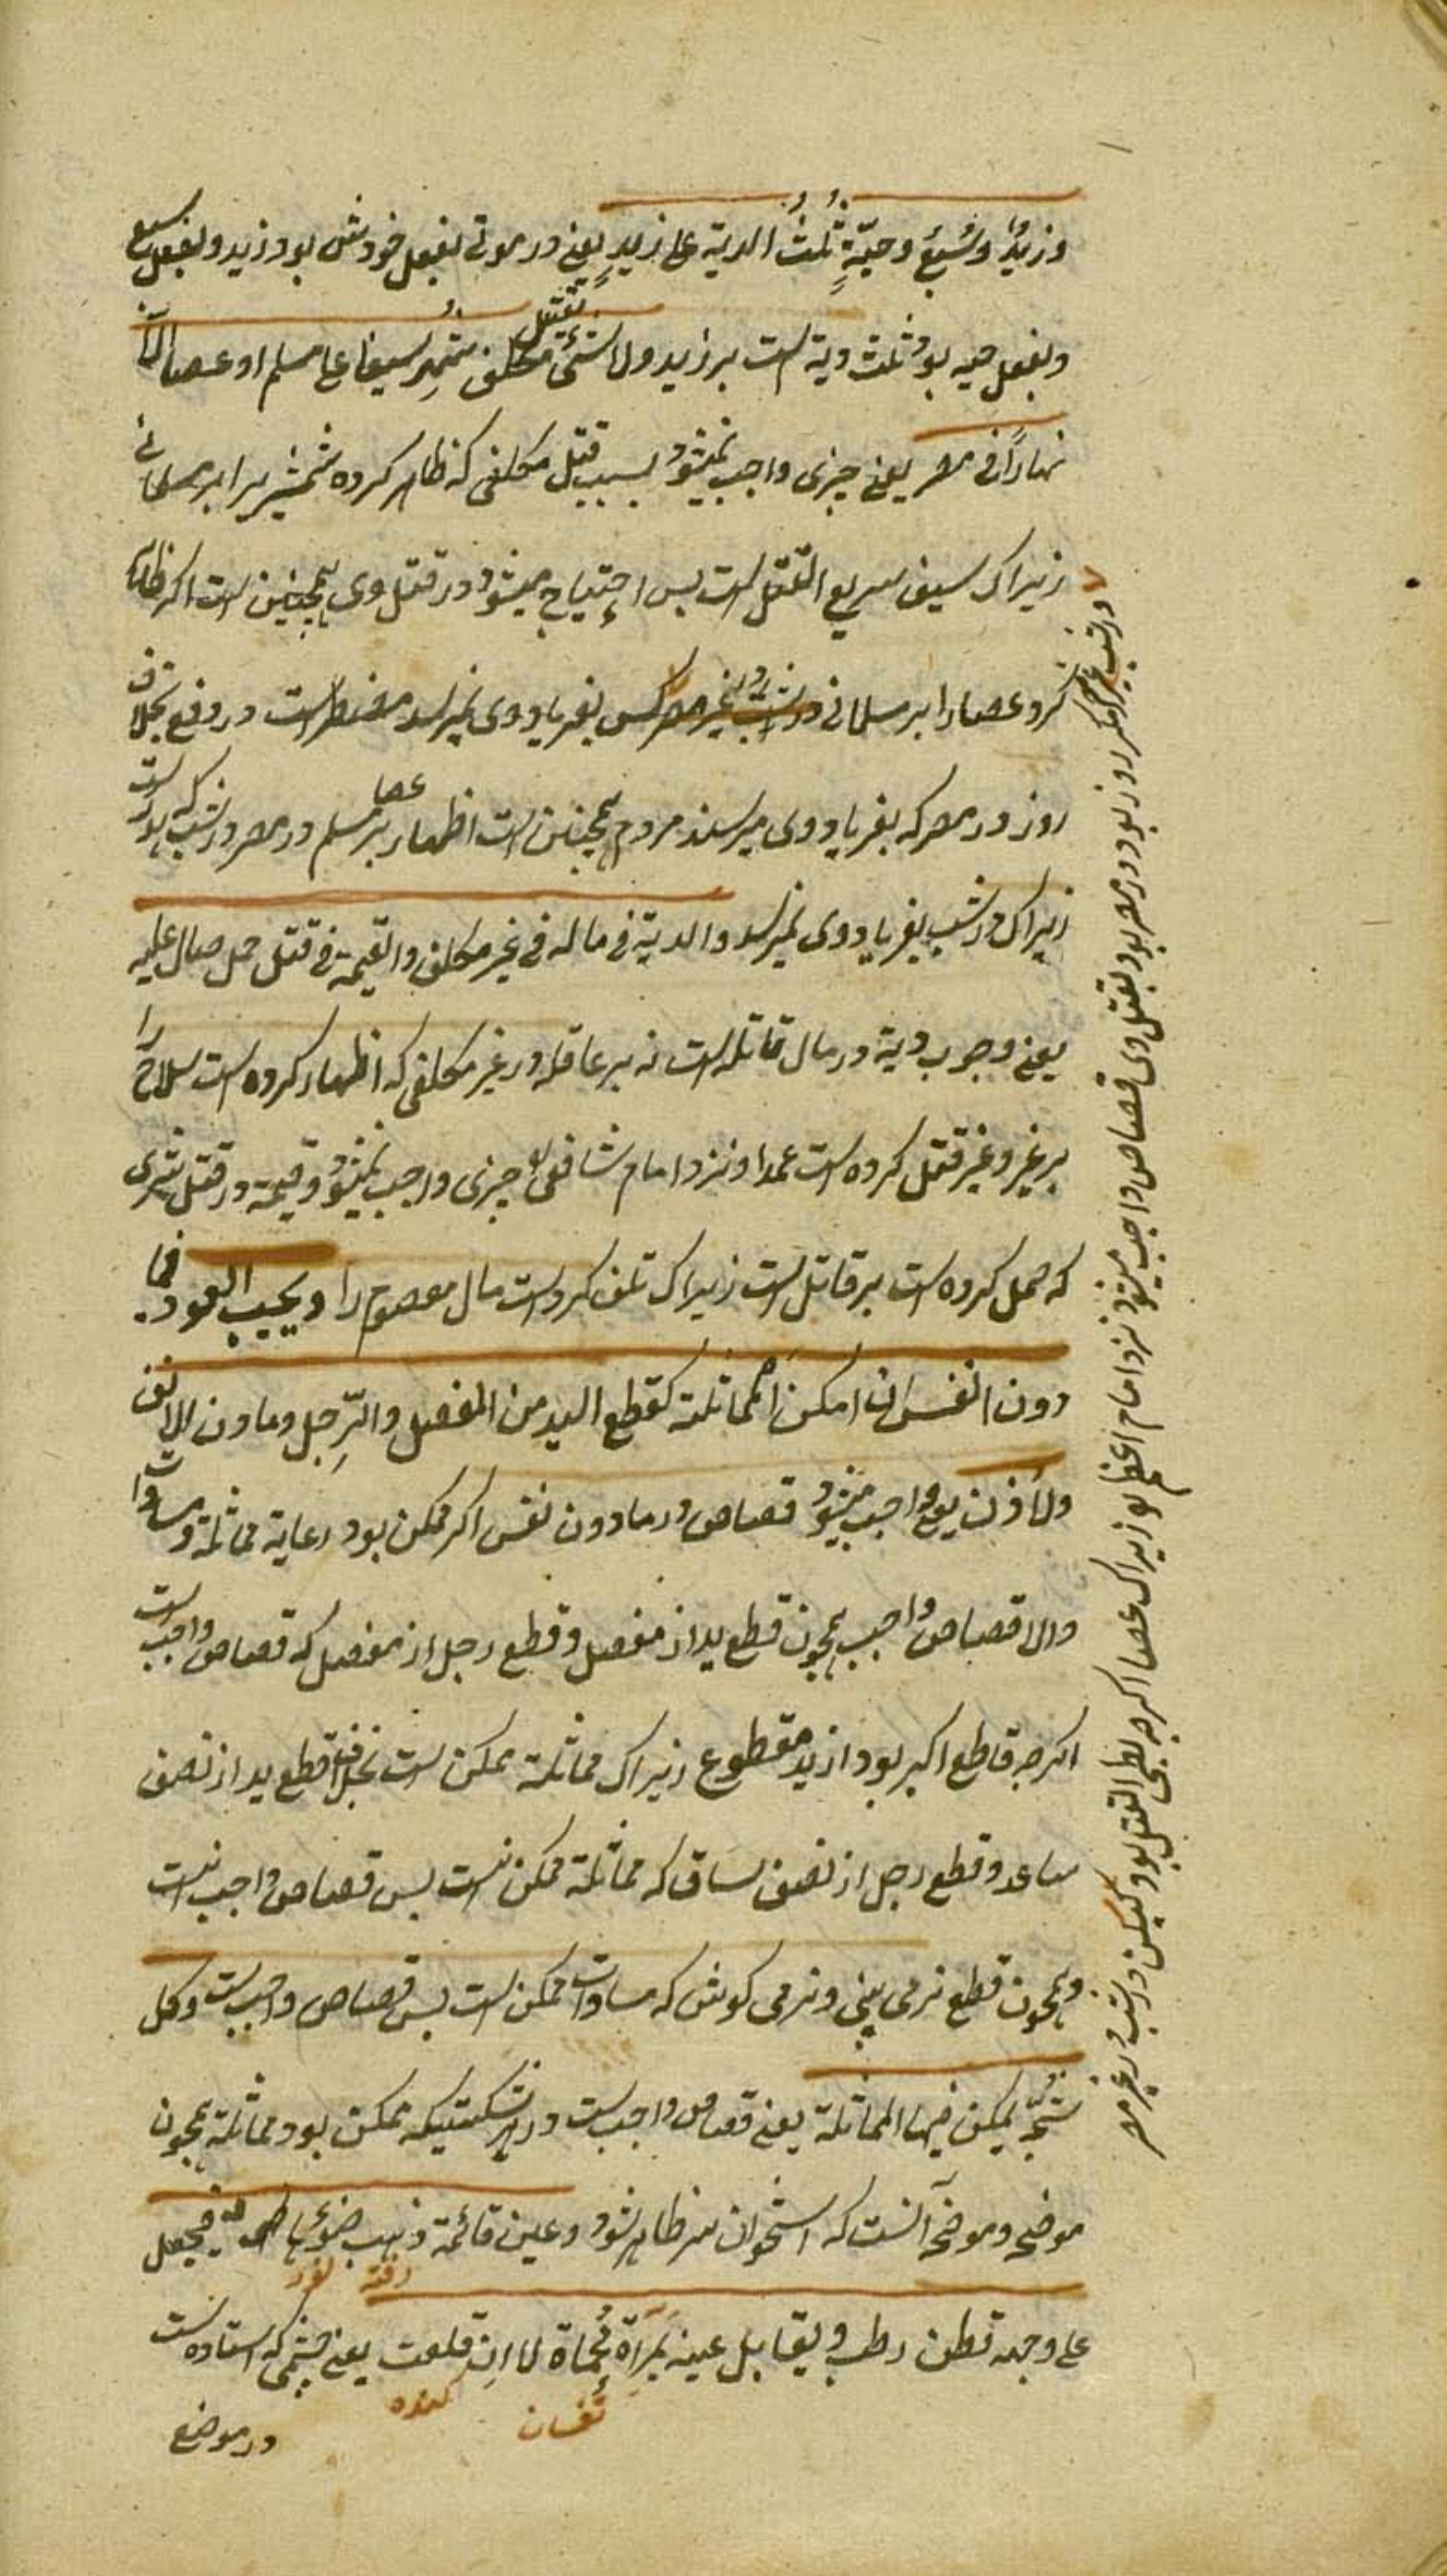 وزيدٌ وسبعٌ وحيّةٍ ثُلثُ الدية على زيدٍ يعنى در موتى بفعل خودش بود وزيد وبفعل سبع
وبفعل حيه بود ثلث دية است بر زيد ولا شئَ بقتل مكلف شَهِر سيفا على مسلم او عصا الا
نهاراً فى مصر يعنى چيزى واجب نميشود بسبب قتل مكلفى كه ظاهر كرده شمشير را بر مسلمانى
زيراك سيف سريع القتل است پس احتياج ميشود در قتل وى همچنين است اكر ظاهر
كرد عصا را بر مسلمانى در شب در غير مصر كس بفرياد وى نميرسد مضطر است در دفع بخلاف
روز در مصر كه بفرياد وى ميرسند مردم همچنين است اظهار عصا بر مسلم در مصر در شب كه هدر است
زيراك در شب بفرياد وى نميرسد والدية فى ماله فى غير مكلف والقيمة فى قتل جمل صال عليه
يعنى وجوب دية در مال قاتله است نه بر عاقله در غير مكلفى كه اظهار كرده است سلاح را
بر غير وغير قتل كرده است عمدا ونزد امام شافعى چيزى واجب نميشود وقيمة در قتل شترى
كه حمل كرده است بر قاتل است زيراك تلف كرده است مال معصوم را ويجب القود فيما
دون النفس ان امكن المماثلة كقطع اليد من المفصل والرِّجل ومارن الانف
والأذن يعنى واجب ميشود قصاص در مادون نفس اكر ممكن بود رعاية مماثلة ومساوات
والا قصاص واجب همچون قطع يد از مفصل وقطع رجل از مفصل كه قصاص واجب است
اكرچه قاطع اكبر بود از يد مقطوع زيراك مماثلة ممكن است بخلاف قطع يد از نصف
ساعد وقطع رجل از نصف ساق كه مماثلة ممكن نيست پس قصاص واجب نيست
وهمچون قطع نرمى بينى ونرمى كوش كه مساوات ممكن است پس قصاص واجب است وكل
شجّةٍ يمكن فيها المماثلة يعنى قصاص واجب است در هر شكستيكه ممكن بود مماثلة همچون
موضحه وموضحه آنست كه استخوان سر ظاهر شود وعين قائمة ذهب ضوئها فيجعل
رفته نور
على وجهه قطن رطب ويقابل عينه بمرآة مُحماة لا ان قلعت يعنى چشمى كه استاده است
تفسان كنده
در موضع
در شب در غير مصر اكر روز بود در مصر بود بقتل وى قصاص واجب ميشود نزد امام اعظم زيراك عصا اكرچه بطى القتل بود ليكن در شب در غير مصر